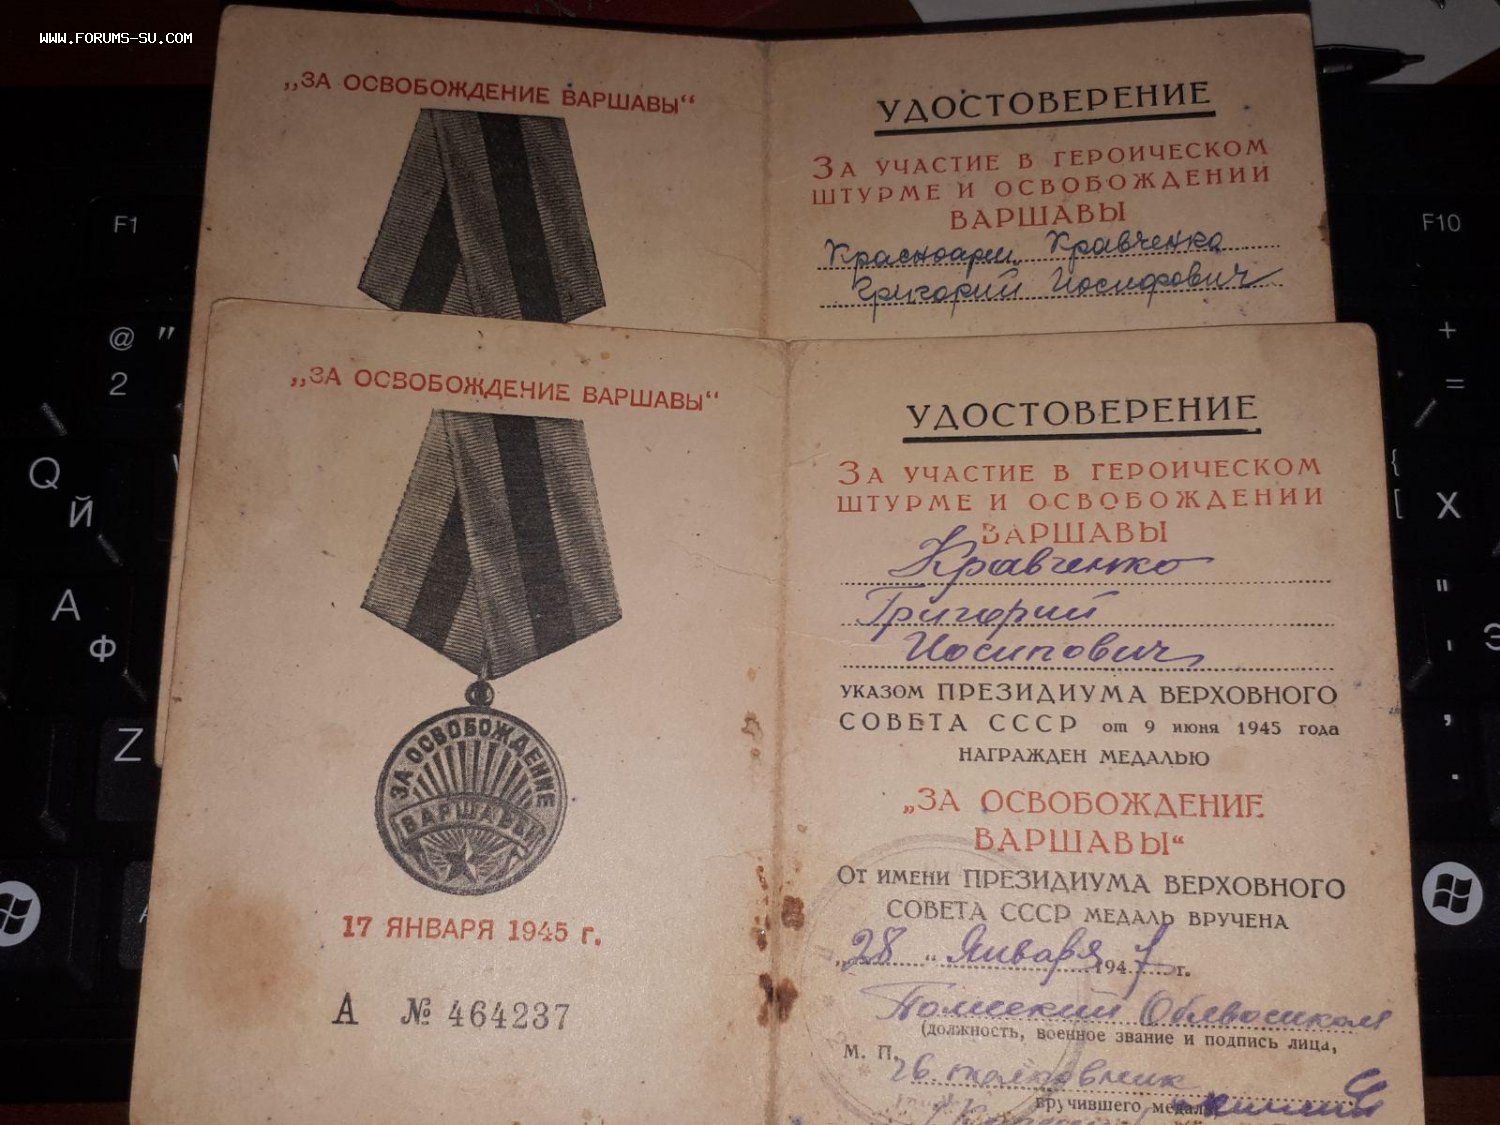 WWW.FORUMS-SU.COM
„ЗА ОСВОБОЖДЕНИЕ ВАРШАВЫ“
УДОСТОВЕРЕНИЕ
ЗА УЧАСТИЕ В ГЕРОИЧЕСКОМ
ШТУРМЕ И ОСВОБОЖДЕНИИ
ВАРШАВЫ
Красноарм. Кравченко
Григорий Иосифович
„ЗА ОСВОБОЖДЕНИЕ ВАРШАВЫ“
ЗА ОСВОБОЖДЕНИЕ
ВАРШАВЫ
17 ЯНВАРЯ 1945 г.
А № 464237
УДОСТОВЕРЕНИЕ
ЗА УЧАСТИЕ В ГЕРОИЧЕСКОМ
ШТУРМЕ И ОСВОБОЖДЕНИИ
ВАРШАВЫ
Кравченко
Григорий
Иосипович
УКАЗОМ ПРЕЗИДИУМА ВЕРХОВНОГО
СОВЕТА СССР от 9 июня 1945 года
НАГРАЖДЕН МЕДАЛЬЮ
„ЗА ОСВОБОЖДЕНИЕ
ВАРШАВЫ“
ОТ ИМЕНИ ПРЕЗИДИУМА ВЕРХОВНОГО
СОВЕТА СССР МЕДАЛЬ ВРУЧЕНА
„28“ Января 1947 г.
Томский Облвоенком
(должность, военное звание и подпись лица,
М. П.
полковник
вручившего медаль)
F1
@ "
2
Q
Й
A
Ф
Z
F10
+
=
{
[ Х
"
'
Э
,
.